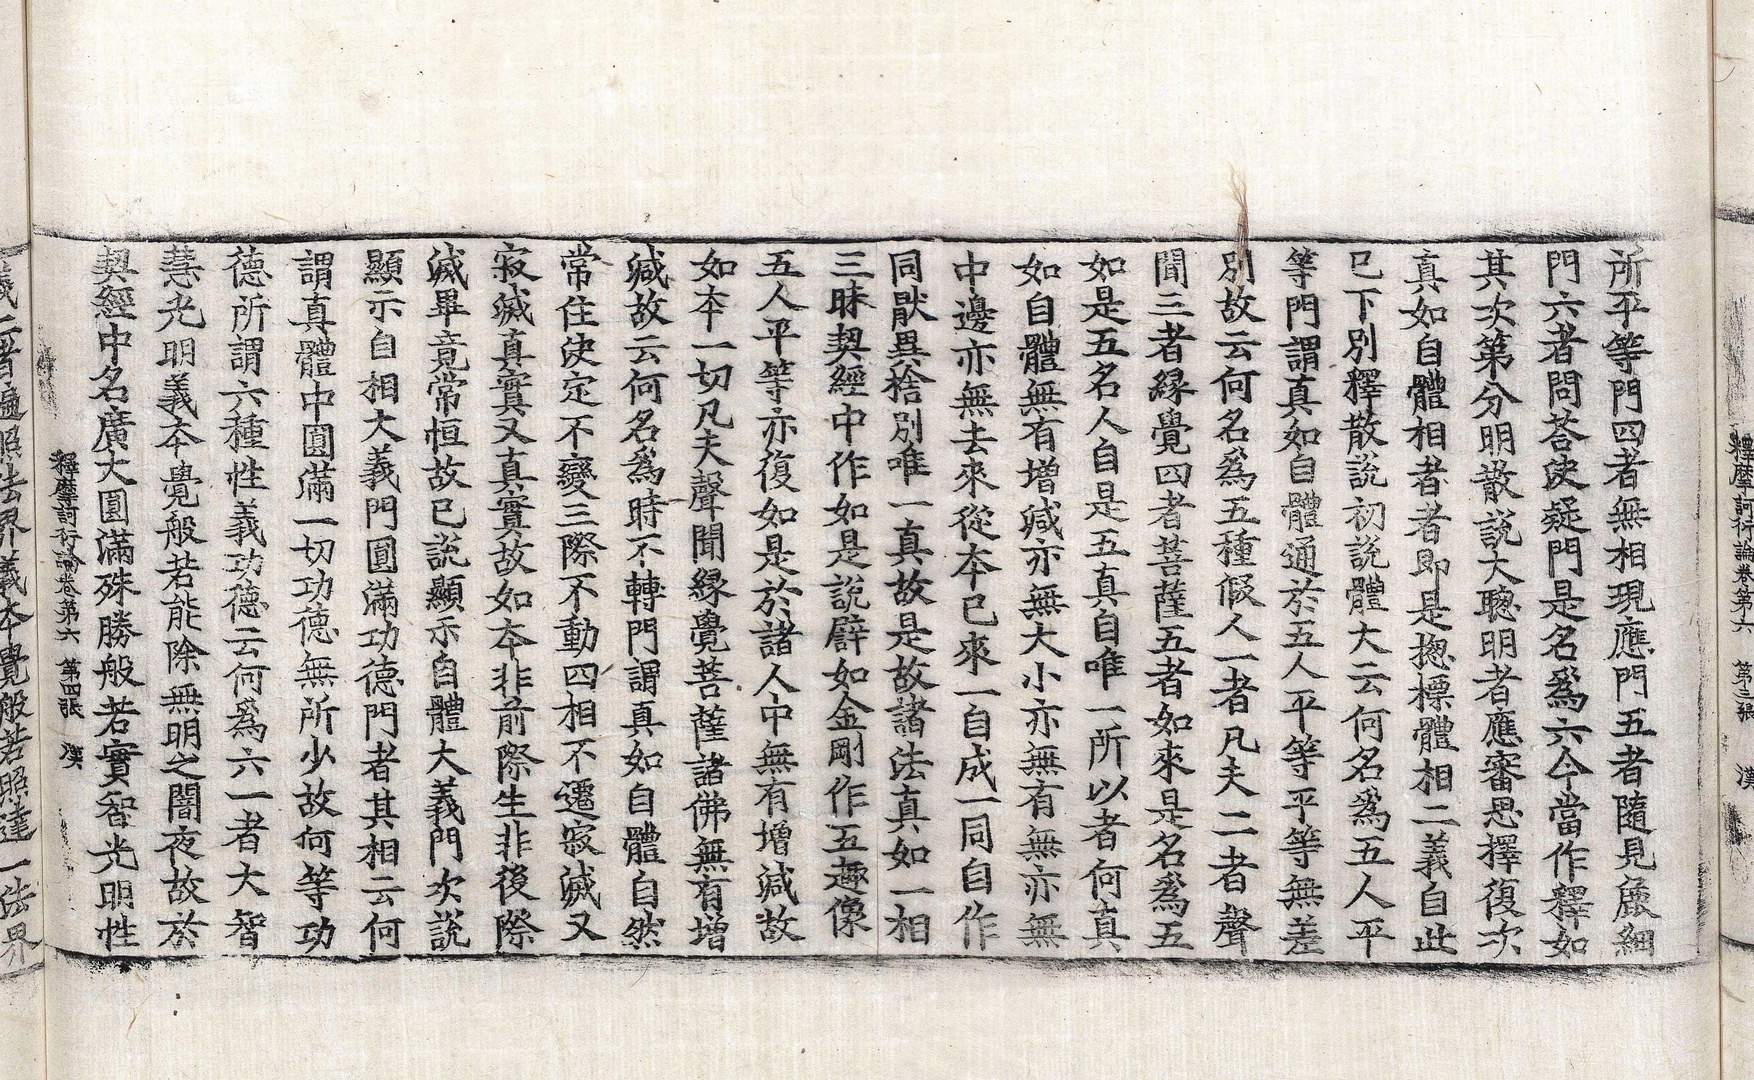 釋摩訶衍論卷第六 第三張 漢
所平等門四者無相現應門五者隨見麁細
門六者問荅決疑門是名爲六今當作釋如
其次第分明散說大聰明者應審思擇復次
真如自體相者者即是揔標體相二義自此
已下別釋散說初說體大云何名爲五人平
等門謂真如自體通於五人平等平等無差
別故云何名爲五種假人一者凡夫二者聲
聞三者縁覺四者菩薩五者如來是名爲五
如是五名人自是五真自唯一所以者何真
如自體無有增減亦無大小亦無有無亦無
中邊亦無去來從本已來一自成一同自作
同猒異捨別唯一真故是故諸法真如一相
三昧契經中作如是說譬如金剛作五趣像
五人平等亦復如是於諸人中無有增減故
如本一切凡夫聲聞縁覺菩薩諸佛無有增
減故云何名爲時不轉門謂真如自體自然
常住決定不變三際不動四相不遷寂滅又
寂滅真實又真實故如本非前際生非後際
滅畢竟常恒故已說顯示自體大義門次說
顯示自相大義門圓滿功德門者其相云何
謂真體中圓滿一切功德無所少故何等功
德所謂六種性義功德云何爲六一者大智
慧光明義本覺般若能除無明之闇夜故於
契經中名廣大圓滿殊勝般若實智光明性
釋摩訶衍論卷第六 第四張 漢
義二者遍照法界義本覺般若照達一法界